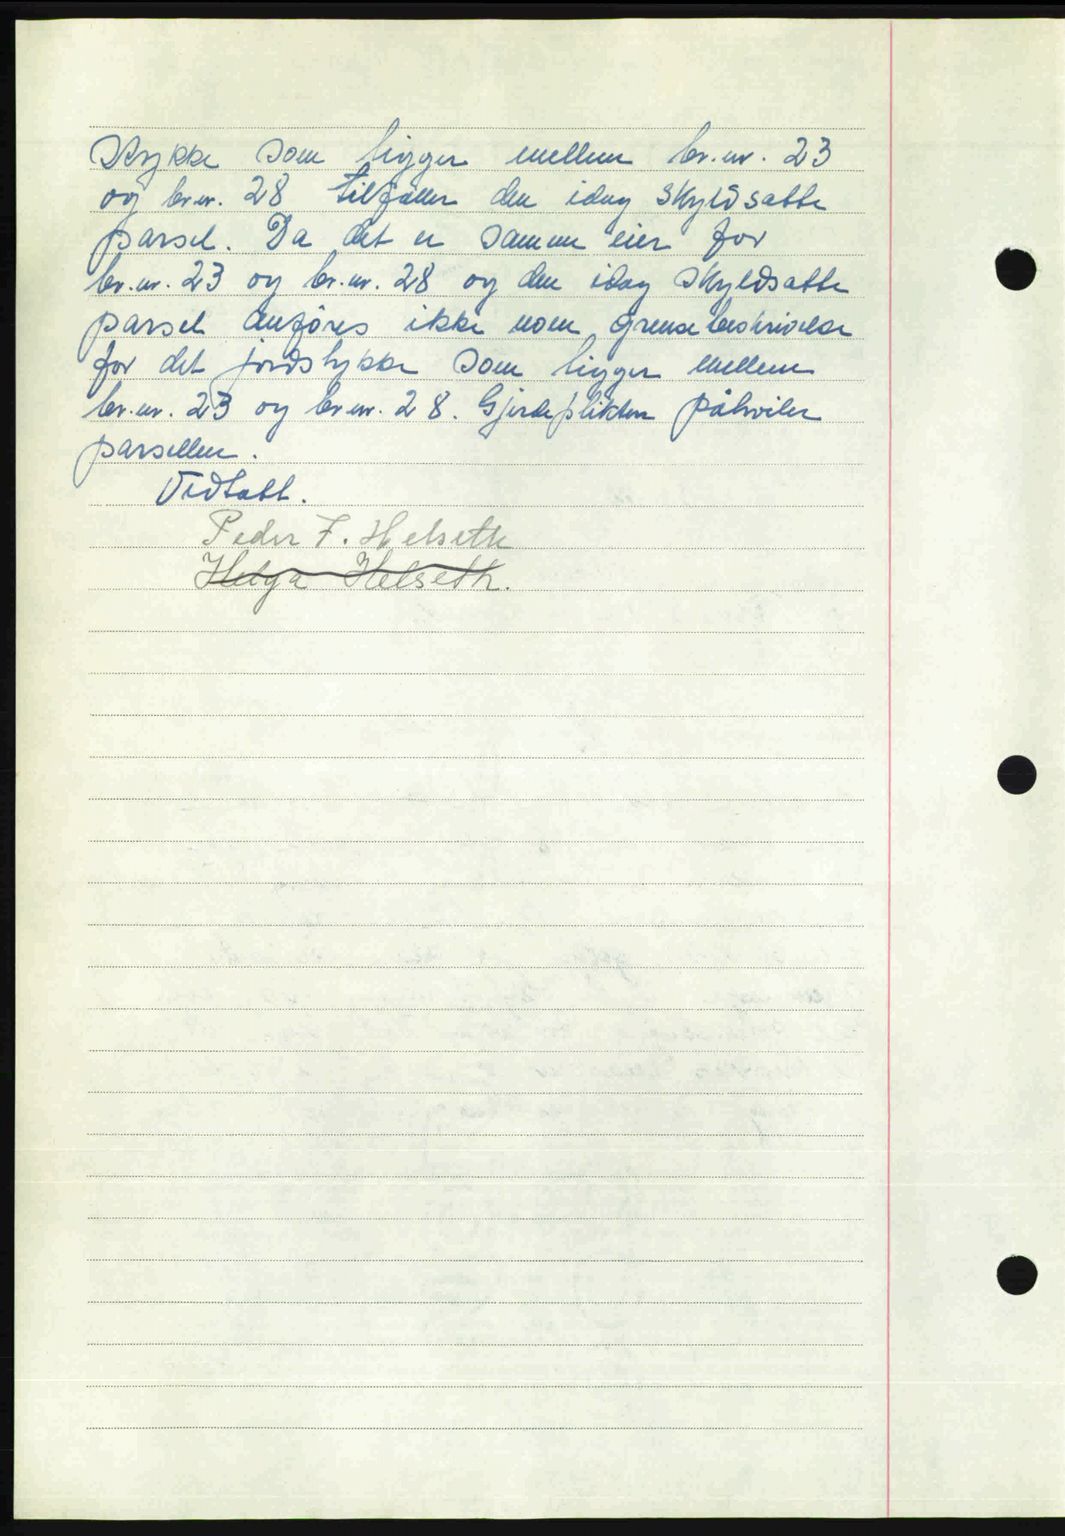 Stykke som ligger mellem br.nr. 23
og br.nr. 28 tilfaller den idag skyldsatte
parsel. Da det er samme eier for
br.nr. 23 og br.nr. 28 og den idag skyldsatte
parsel anføres ikke noen grensebeskrivelse
for det jordstykke som ligger mellem
br.nr. 23 og br.nr. 28. Gjerdeplikten påhviler
parsellen.
Vedtatt.
Peder F. Helseth
Helga Helseth.